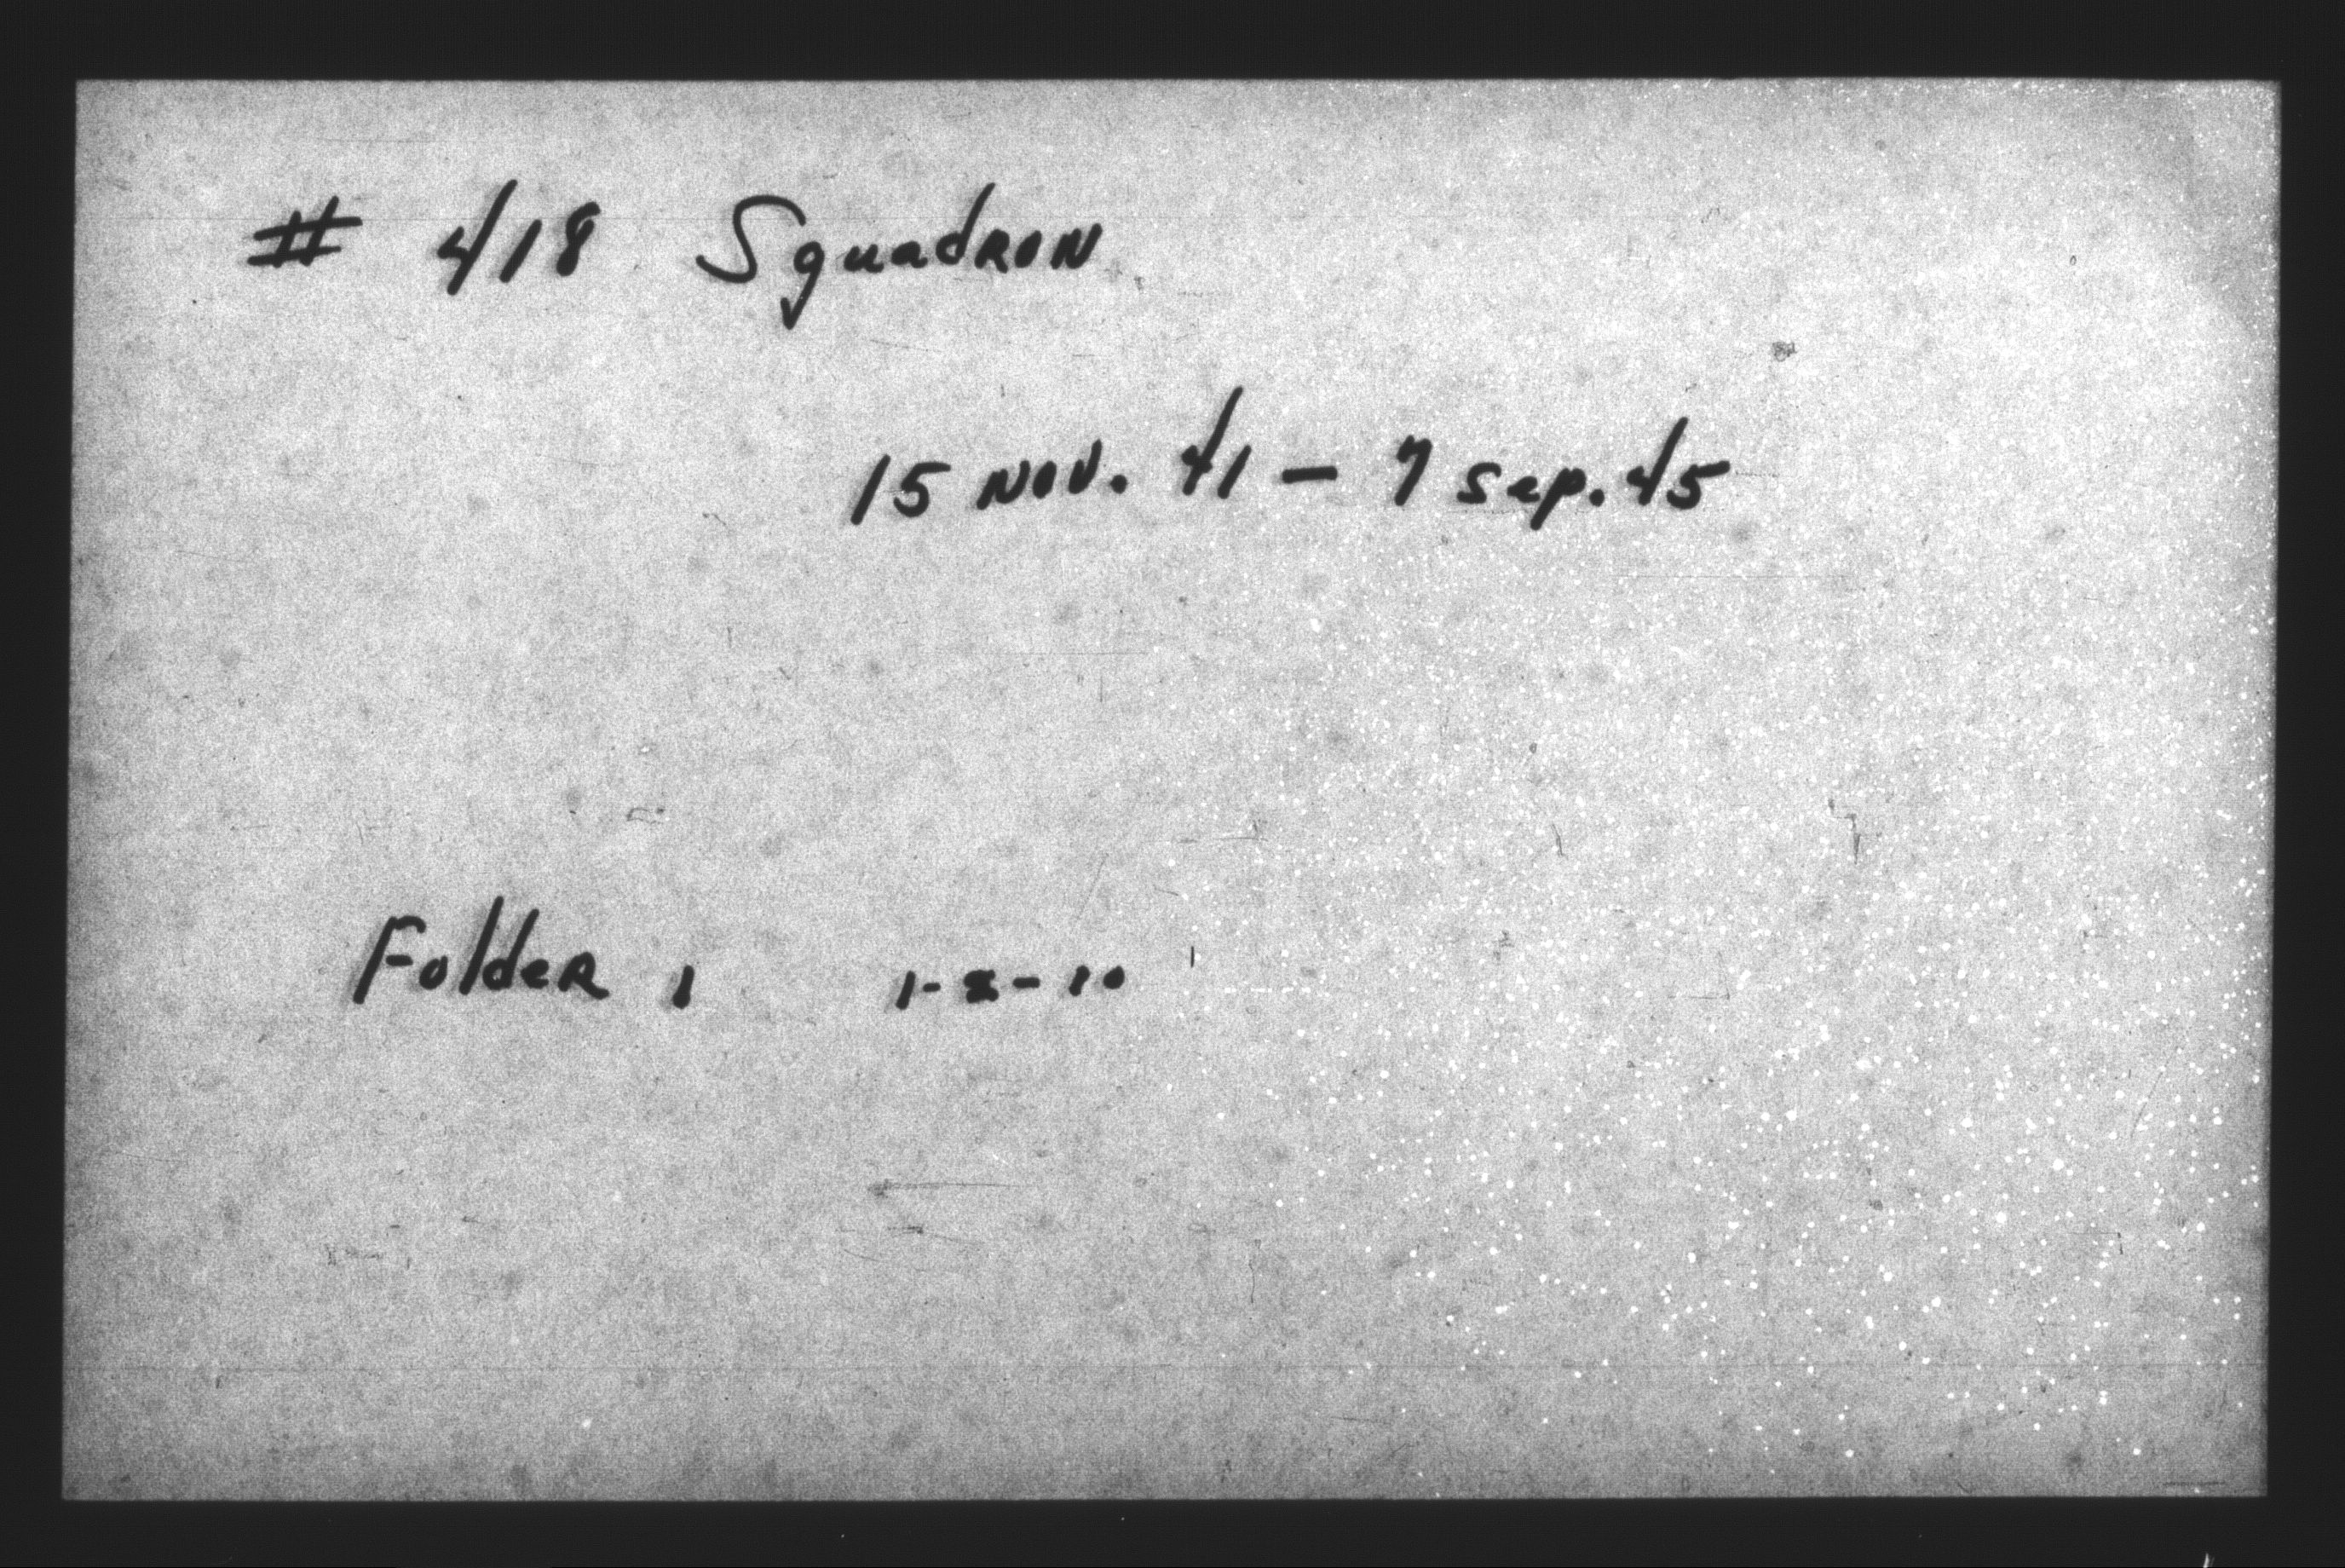 # 418 Squadron
15 Nov. 41 - 7 Sep. 45
Folder 1 1-8-10